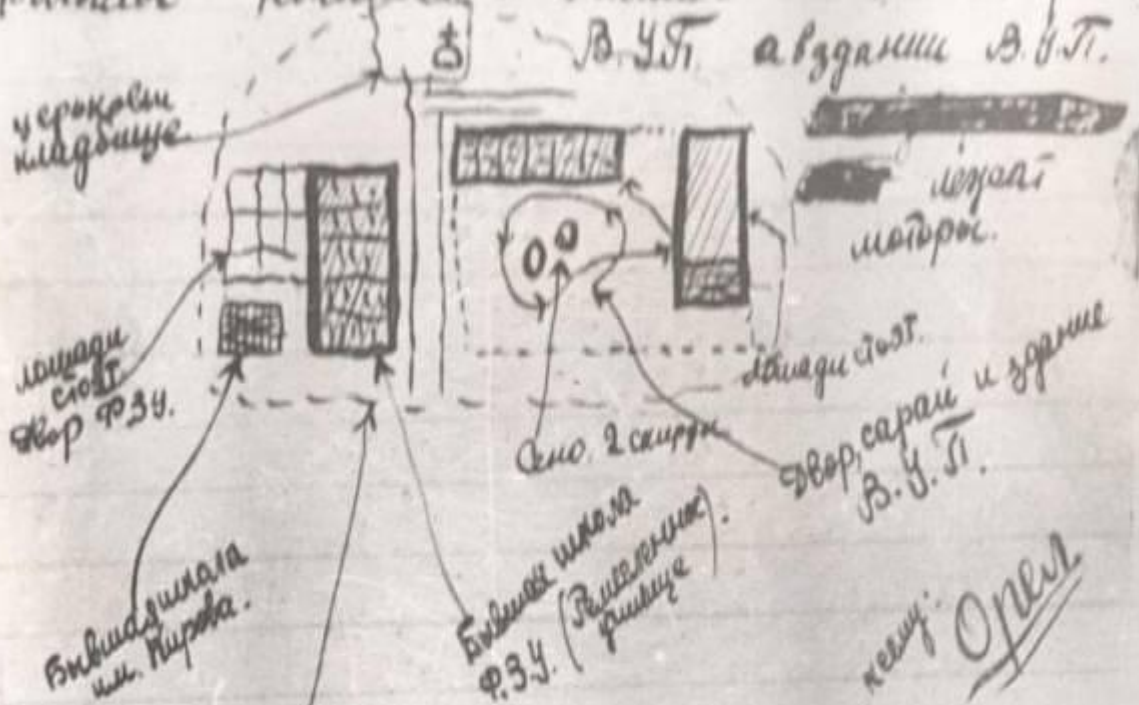 В.У.П. а в здании В.У.П.
лежат
моторы.
церковь и
кладбище
лошади
стоят
двор ФЗУ.
лошади стоят.
Сено. 2 скирды
двор, сарай и здание
В.У.П.
Бывшая школа
им. Кирова.
Бывшая школа
Ф.З.У. (Ремесленных
училище).
Орел